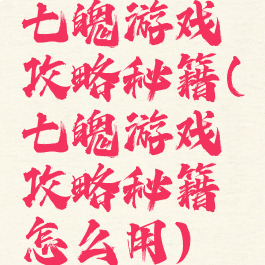 七魄游戏
攻略秘籍(
七魄游戏
攻略秘籍
怎么用)